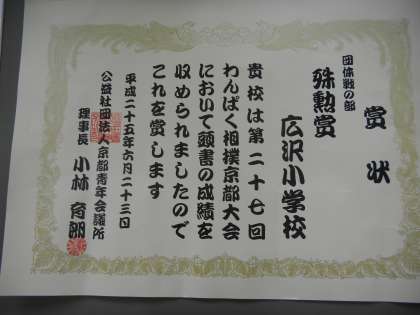 賞状
団体戦の部
殊勲賞
広沢小学校
貴校は第二十七回
わんぱく相撲京都大会
において頭書の成績を
収められましたので
これを賞します
平成二十五年六月二十三日
公益社団法人京都青年会議所
理事長 小林 育朗